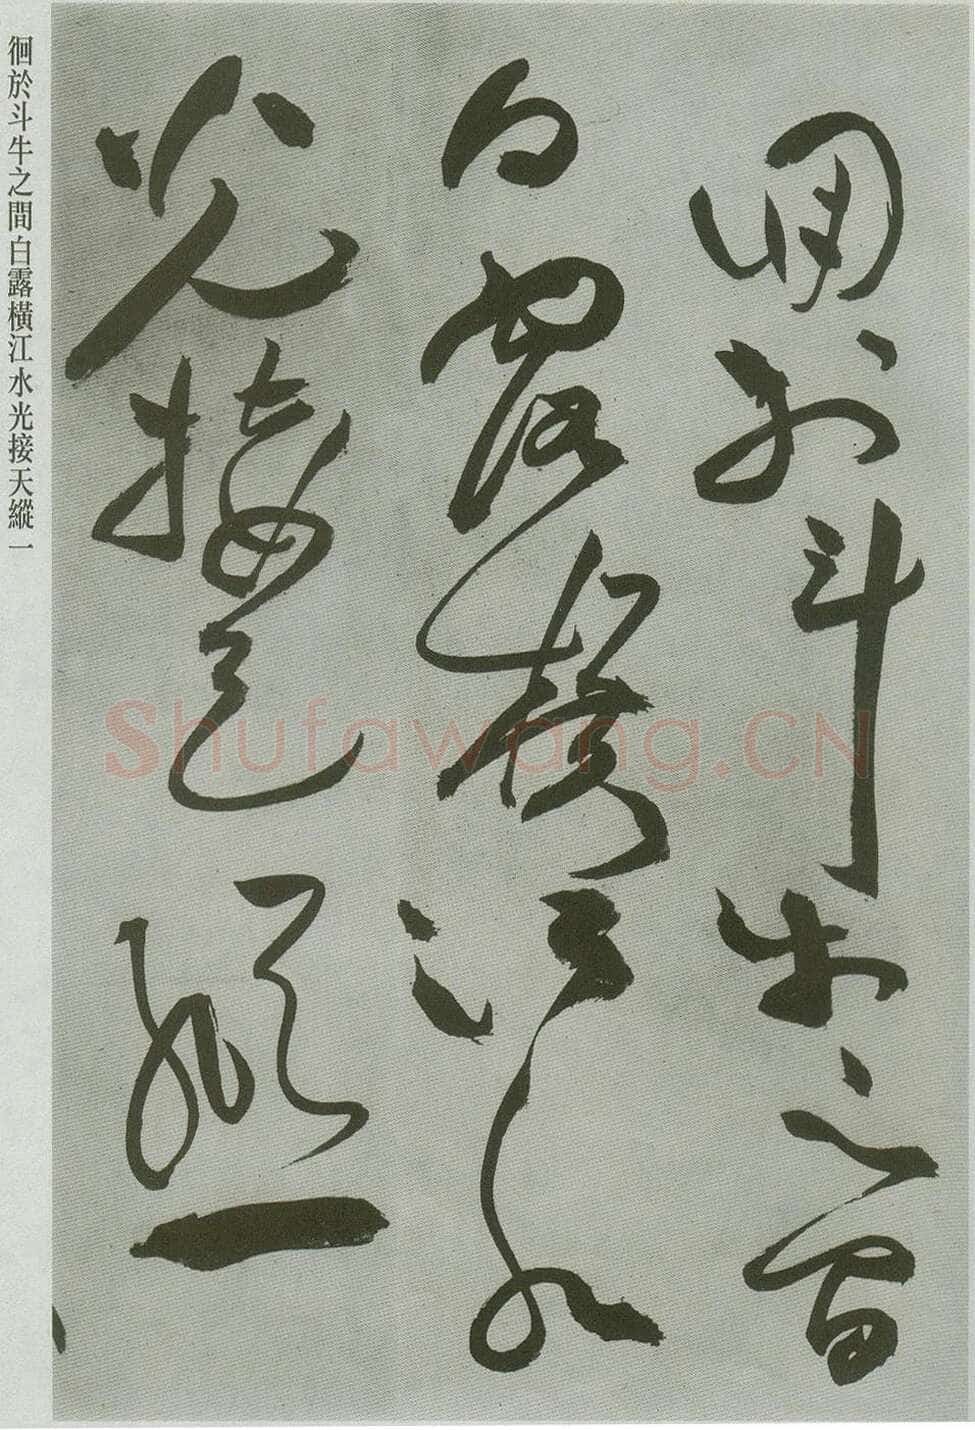 佪於斗牛之間
白露橫江水
光接天縱一
徊於斗牛之間白露橫江水光接天縱一
Shufawang.CN